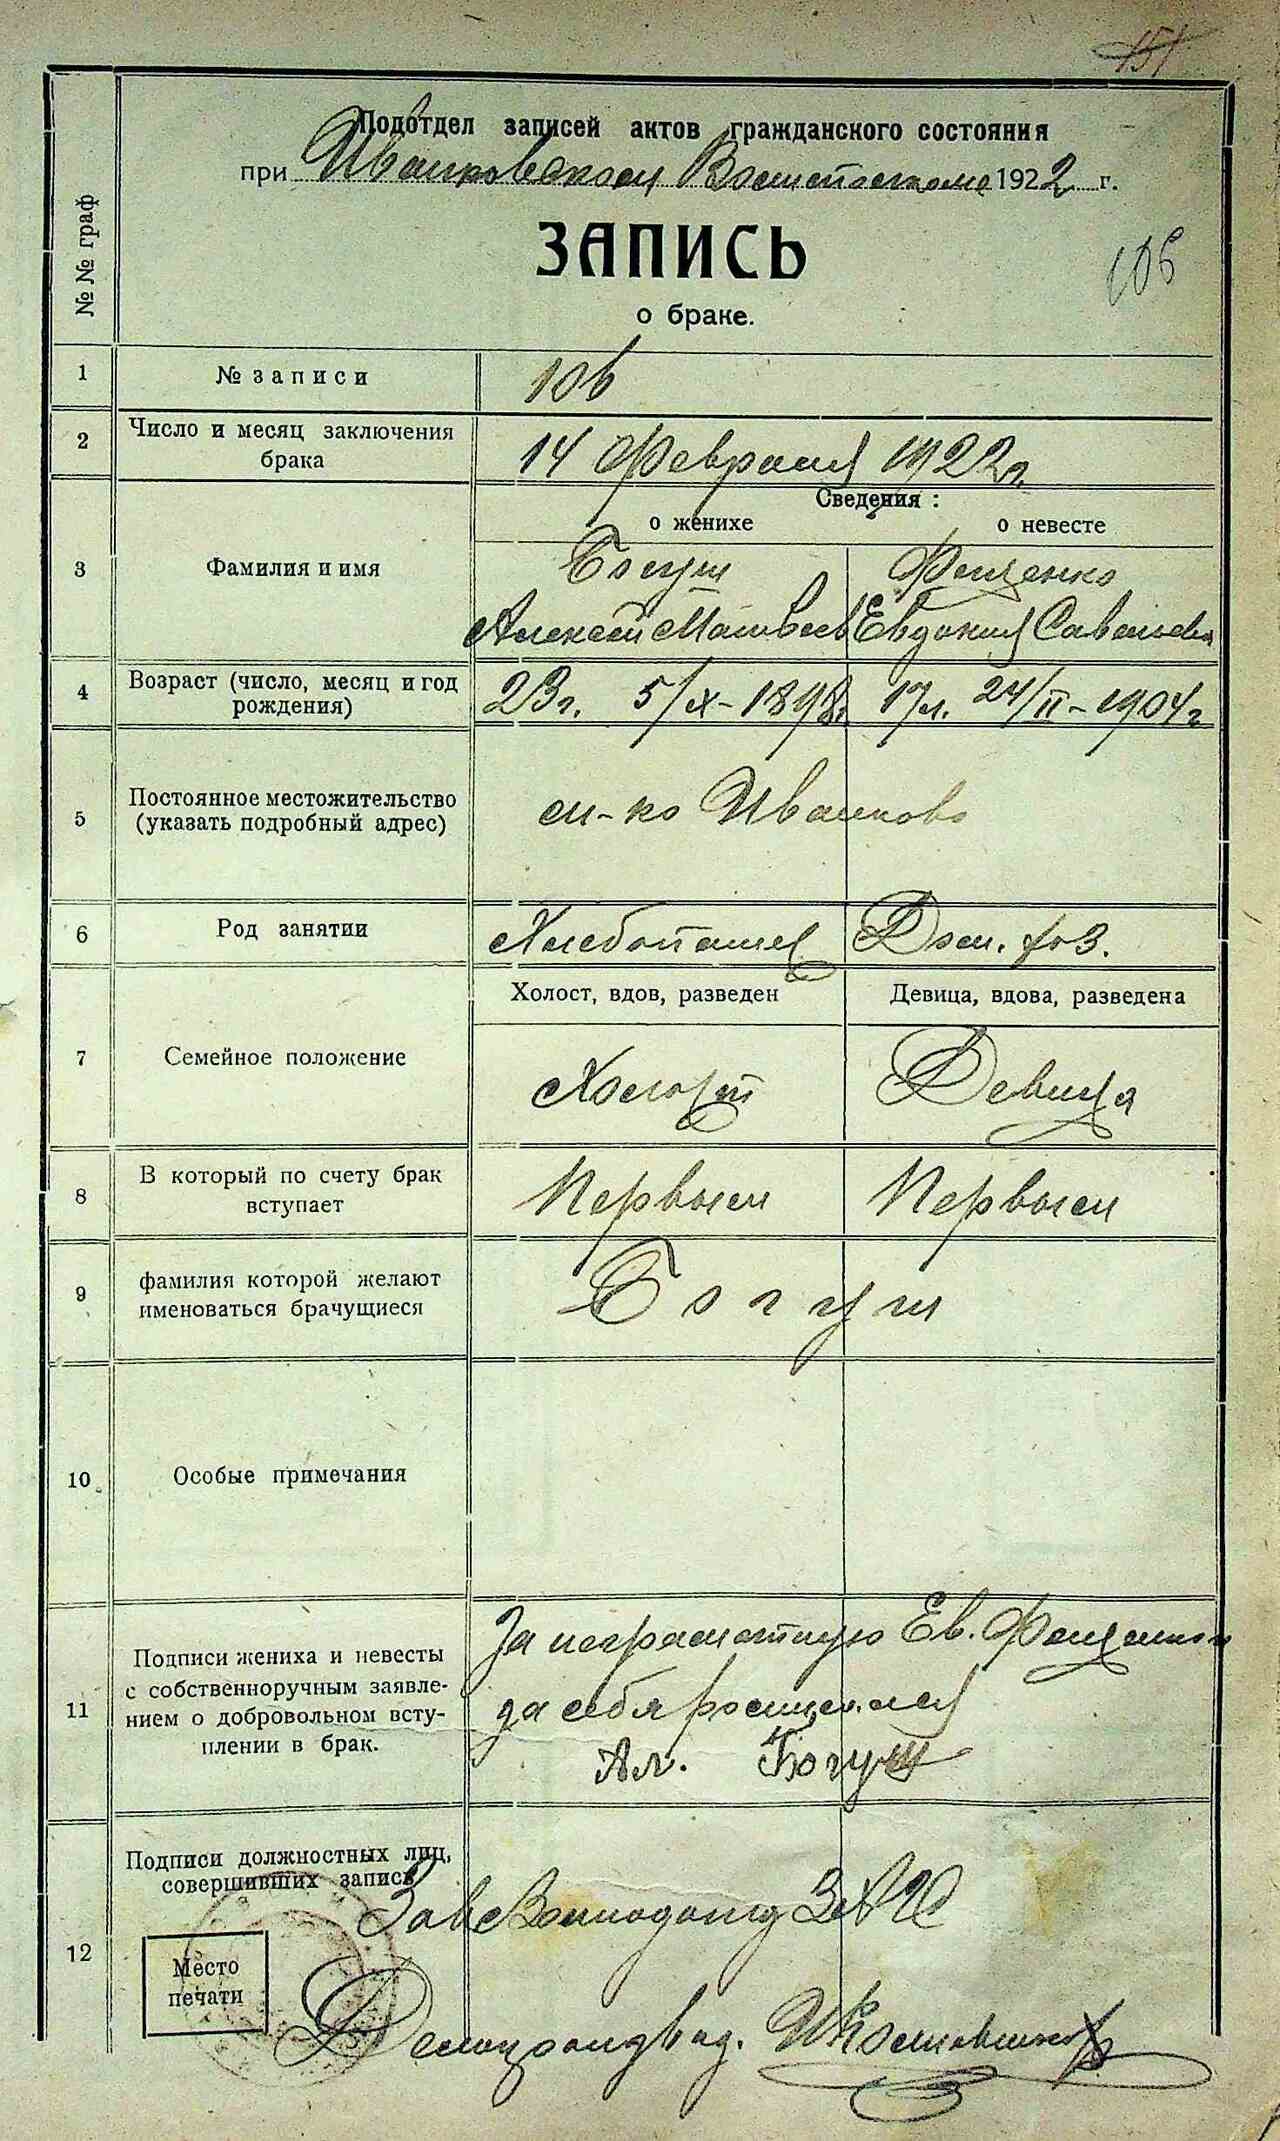 151
Подотдел записей актов гражданского состояния
при Иванковском Волисполкоме 1922 г.
ЗАПИСЬ
106
о браке.
№ № граф
1 № записи 106
2 Число и месяц заключения брака 14 Февраля 1922 г.
Сведения:
о женихе о невесте
3 Фамилия и имя Богуш Фещенко
Алексей Матвеев Евдокия Савельева
4 Возраст (число, месяц и год рождения) 23 г. 5/X-1898 г. 17 л. 24/II-1904 г
5 Постоянное местожительство (указать подробный адрес) м-ко Иванково
6 Род занятии Хлебопашец Дом. хоз.
Холост, вдов, разведен Девица, вдова, разведена
7 Семейное положение Холост Девица
8 В который по счету брак вступает Первым Первым
9 фамилия которой желают именоваться брачущиеся Богуш
10 Особые примечания
11 Подписи жениха и невесты с собственноручным заявлением о добровольном вступлении в брак.
За неграмотную Ев. Фещенко
за себя расписался
Ал. Богуш
12 Подписи должностных лиц, совершивших запись
Зав Волподотд ЗАГС
Место печати
Делопроизвод.